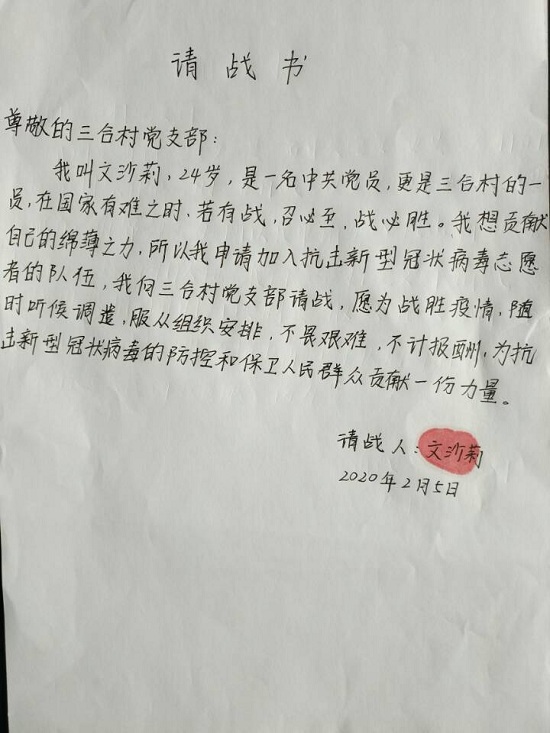 请战书
尊敬的三合村党支部：
我叫文沙莉，24岁，是一名中共党员，更是三合村的一
员，在国家有难之时，若有战，召必至，战必胜。我想贡献
自己的绵薄之力，所以我申请加入抗击新型冠状病毒志愿
者的队伍，我向三合村党支部请战，愿为战胜疫情，随
时听候调遣，服从组织安排，不畏艰难，不计报酬，为抗
击新型冠状病毒的防控和保卫人民群众贡献一份力量。
请战人：文沙莉
2020年2月5日